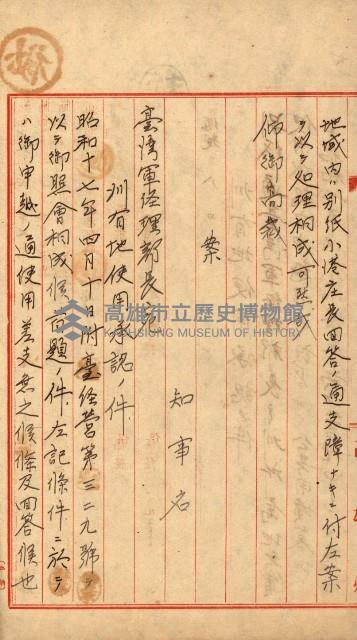 地域内ハ別紙小港庄長回答ノ通支障ナキニ付左案
ヲ以テ処理相成可然哉
仰御高裁
案
知事名
臺灣軍経理部長宛
州有地使用承認ノ件
昭和十七年四月十日附臺経営第三二九號ヲ
以テ御照會相成候首題ノ件左記條件ニ於テ
ハ御申越ノ通使用差支無之候條及回答候也
高雄市立歷史博物館
KAOHSIUNG MUSEUM OF HISTORY